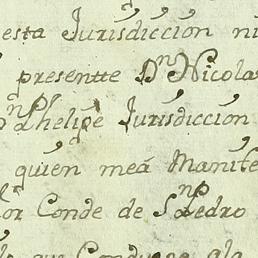 esta Jurisdiccion ni
presentte Dn Nicola
Phelipe Jurisdiccion
quien meá Manife
or Conde de Sn Pedro
que Conduzga ala